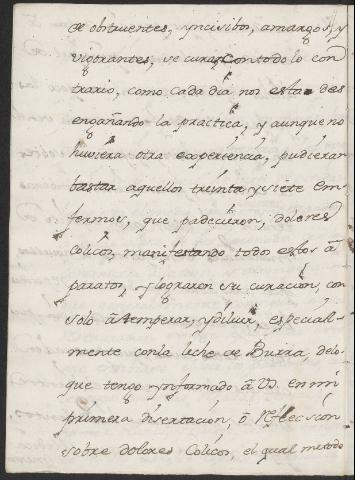 de obstruentes, yncisibos, amargos, y
vibrantes, se curan Con todo lo con
trario, como cada dia nos esta des
engañando la practica, y aunque no
huviera otra experiencia, pudieran
bastar aquellos treinta y siete em
fermos, que padecieron, dolores
Colicos, manifestando todos estos á
paratos, y lograron su curacion, con
solo á temperar, y diluir, especial-
mente con la leche de Burra, de lo
que tengo ynformado á V. en mi
primera disertacion, ó Reflecsion
sobre dolores Colicos, el qual metodo